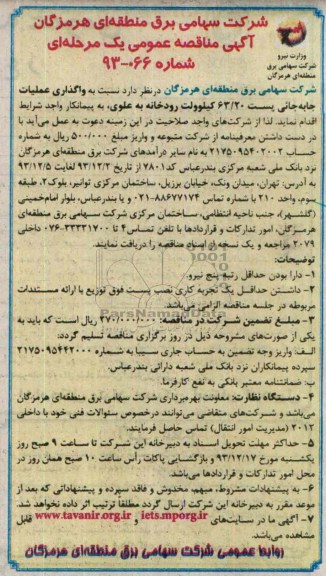 شرکت سهامی برق منطقه‌ای هرمزگان
آگهی مناقصه عمومی یک مرحله‌ای
شماره ۶۶-۹۳۰
وزارت نیرو
شرکت سهامی برق
منطقه‌ای هرمزگان
شرکت سهامی برق منطقه‌ای هرمزگان درنظر دارد نسبت به واگذاری عملیات
جابه‌جائی پست ۶۳/۲۰ کیلوولت رودخانه به علوی، به پیمانکار واجد شرایط
اقدام نماید. لذا از شرکت‌های واجد صلاحیت در این زمینه دعوت به عمل می‌آید با
در دست داشتن معرفینامه از شرکت متبوعه و واریز مبلغ ۵۰۰/۰۰۰ ریال به شماره
حساب ۲۱۷۵۰۹۵۴۰۲۰۰۲ به نام سایر درآمدهای شرکت برق منطقه‌ای هرمزگان
نزد بانک ملی شعبه مرکزی بندرعباس کد ۷۸۰۱ از تاریخ ۹۳/۱۲/۲ لغایت ۹۳/۱۲/۵
به آدرس: تهران، میدان ونک، خیابان برزیل، ساختمان مرکزی توانیر، بلوک ۲، طبقه
سوم، واحد ۲۱۰ با شماره تماس ۸۸۶۷۷۱۷۴-۰۲۱ و یا بندرعباس، بلوار امام‌خمینی
(گلشهر)، جنب ناحیه انتظامی، ساختمان مرکزی شرکت سهامی برق منطقه‌ای
هرمزگان، امور تدارکات و قراردادها با تلفن تماس ۴ تا ۳۳۳۳۱۷۰۰-۰۷۶ داخلی
۲۰۷۹ مراجعه و یک نسخه از اسناد مناقصه را دریافت نمایند.
توضیحات:
۱- دارا بودن حداقل رتبه پنج نیرو.
۲- داشتن حداقل یک تجربه کاری نصب پست فوق توزیع با ارائه مستندات
مربوطه در جلسه مناقصه الزامی می‌باشد.
۳- مبلغ تضمین شرکت در مناقصه: ۲۷۰/۰۰۰/۰۰۰ ریال است که باید به
یکی از صورت‌های مشروحه ذیل در روز برگزاری مناقصه تسلیم گردد:
الف: واریز وجه تضمین به حساب جاری سیبا به شماره ۲۱۷۵۰۹۵۴۴۲۰۰۰
سپرده پیمانکاران نزد بانک ملی شعبه دارائی بندرعباس.
ب: ضمانتنامه معتبر بانکی به نفع کارفرما.
۴- دستگاه نظارت: معاونت بهره‌برداری شرکت سهامی برق منطقه‌ای هرمزگان
می‌باشد و شرکت‌های متقاضی می‌توانند درخصوص سئوالات فنی خود با داخلی
۲۰۱۲ (مدیریت امور انتقال) تماس حاصل فرمایند.
۵- حداکثر مهلت تحویل اسناد به دبیرخانه این شرکت تا ساعت ۹ صبح روز
یکشنبه مورخ ۹۳/۱۲/۱۷ و بازگشایی پاکات رأس ساعت ۱۰ صبح همان روز در
محل امور تدارکات و قراردادها می‌باشد.
۶- به پیشنهادات مشروط، مبهم، مخدوش و فاقد سپرده و پیشنهاداتی که بعد از
موعد مقرر به دبیرخانه این شرکت ارسال گردد مطلقا ترتیب اثر داده نخواهد شد.
۷- آگهی ما در سایت‌های iets.mporg.ir و www.tavanir.org.ir قابل
مشاهده می‌باشد.
روابط عمومی شرکت سهامی برق منطقه‌ای هرمزگان